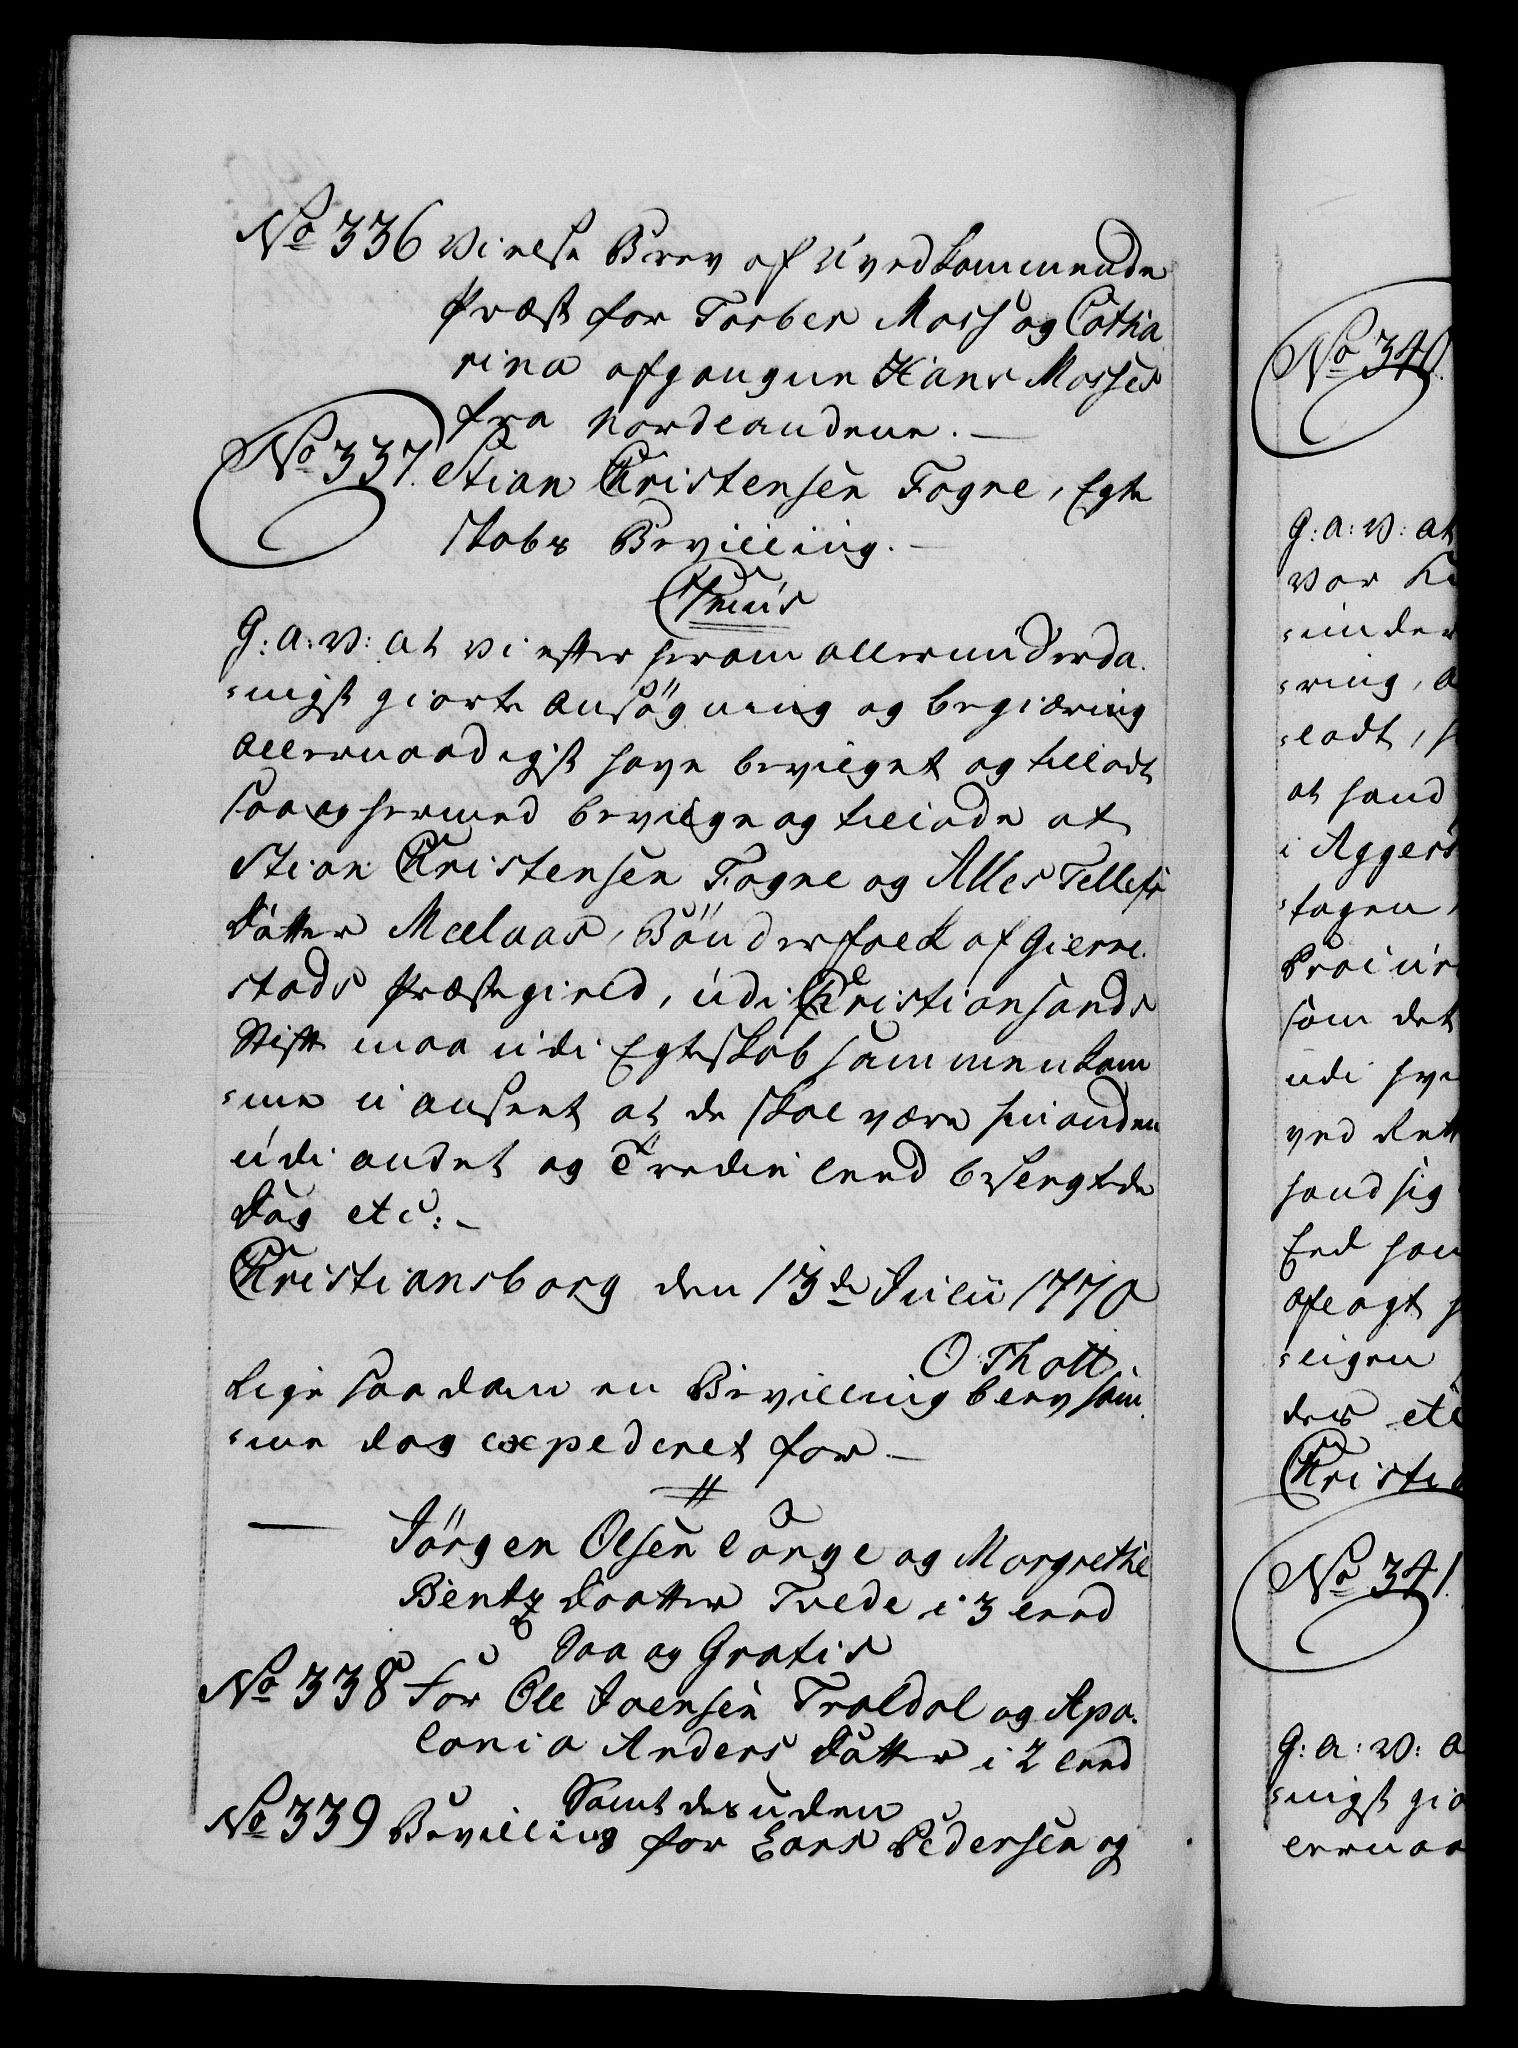 No 336 Vielse Brev af Uvedkommende
Præst for Torber Moss og Catha
rina afgangne Hans Mosses
fra Nordlandene. —
No 337. Stian Christensen Fogne, Egte
skabs Bevilling. —
C7mus
G: A: V: at Vi efter herom allerunderda
=nigst giorte Ansögning og begiæring
allernaadigst have bevilget og tilladt
saa og hermed bevilge og tillade at
Stian Christensen Fogne og Alles Tellefs
Datter Mælaas, Bönderfolck af Gierre
stads Præstegield, udi Christiansands
Stift maa udi Egteskab sammenkom
=me uanseet at de skal være hinanden
udi andet og Tredie Leed beslegtede
Dog etc: —
Christiansborg den 13de Julii 1770
O Thott
Lige saadan en Bevilling blev sam
=me dag expederet for —
—
Jörgen Olsen Lange og Margrethe
Bentz Daatter Tvede i 3 Leed
Saa og Gratis
No 338 For Ole Joensen Traldal og Apo
lonia Anders Datter i 2 Leed
Samt desuden
No 339 Bevilling for Lars Pedersen og
No 340.
G: A: V: at
vor
=under
=ring, a
=ladt, s
at hand
i Aggers
=tagen,
Procur
som det
udi hve
ved Rett
hand sig
Eed han
aflagt
=ligen
des etc
Christi
No 341.
G: A: V: a
=nigst gio
lernaa